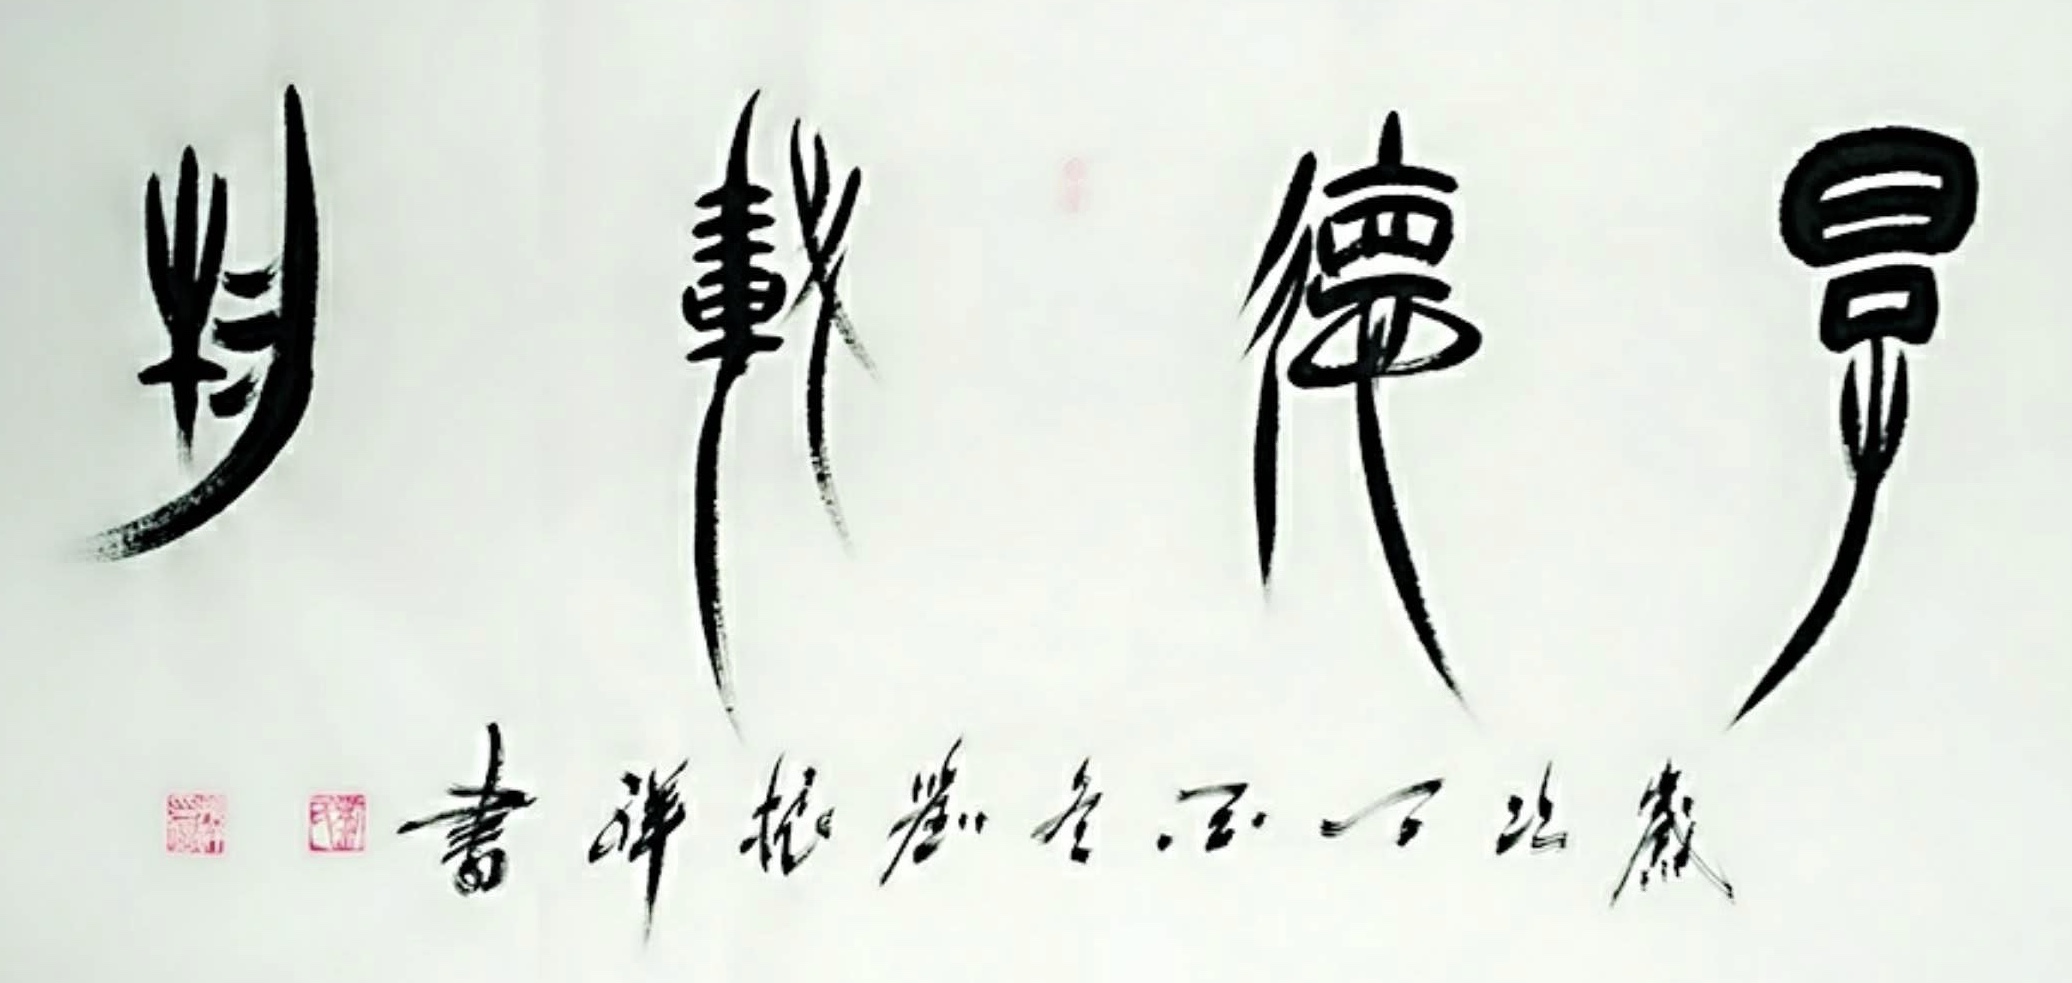 厚德載物
歲次丁酉冬劉振祥書